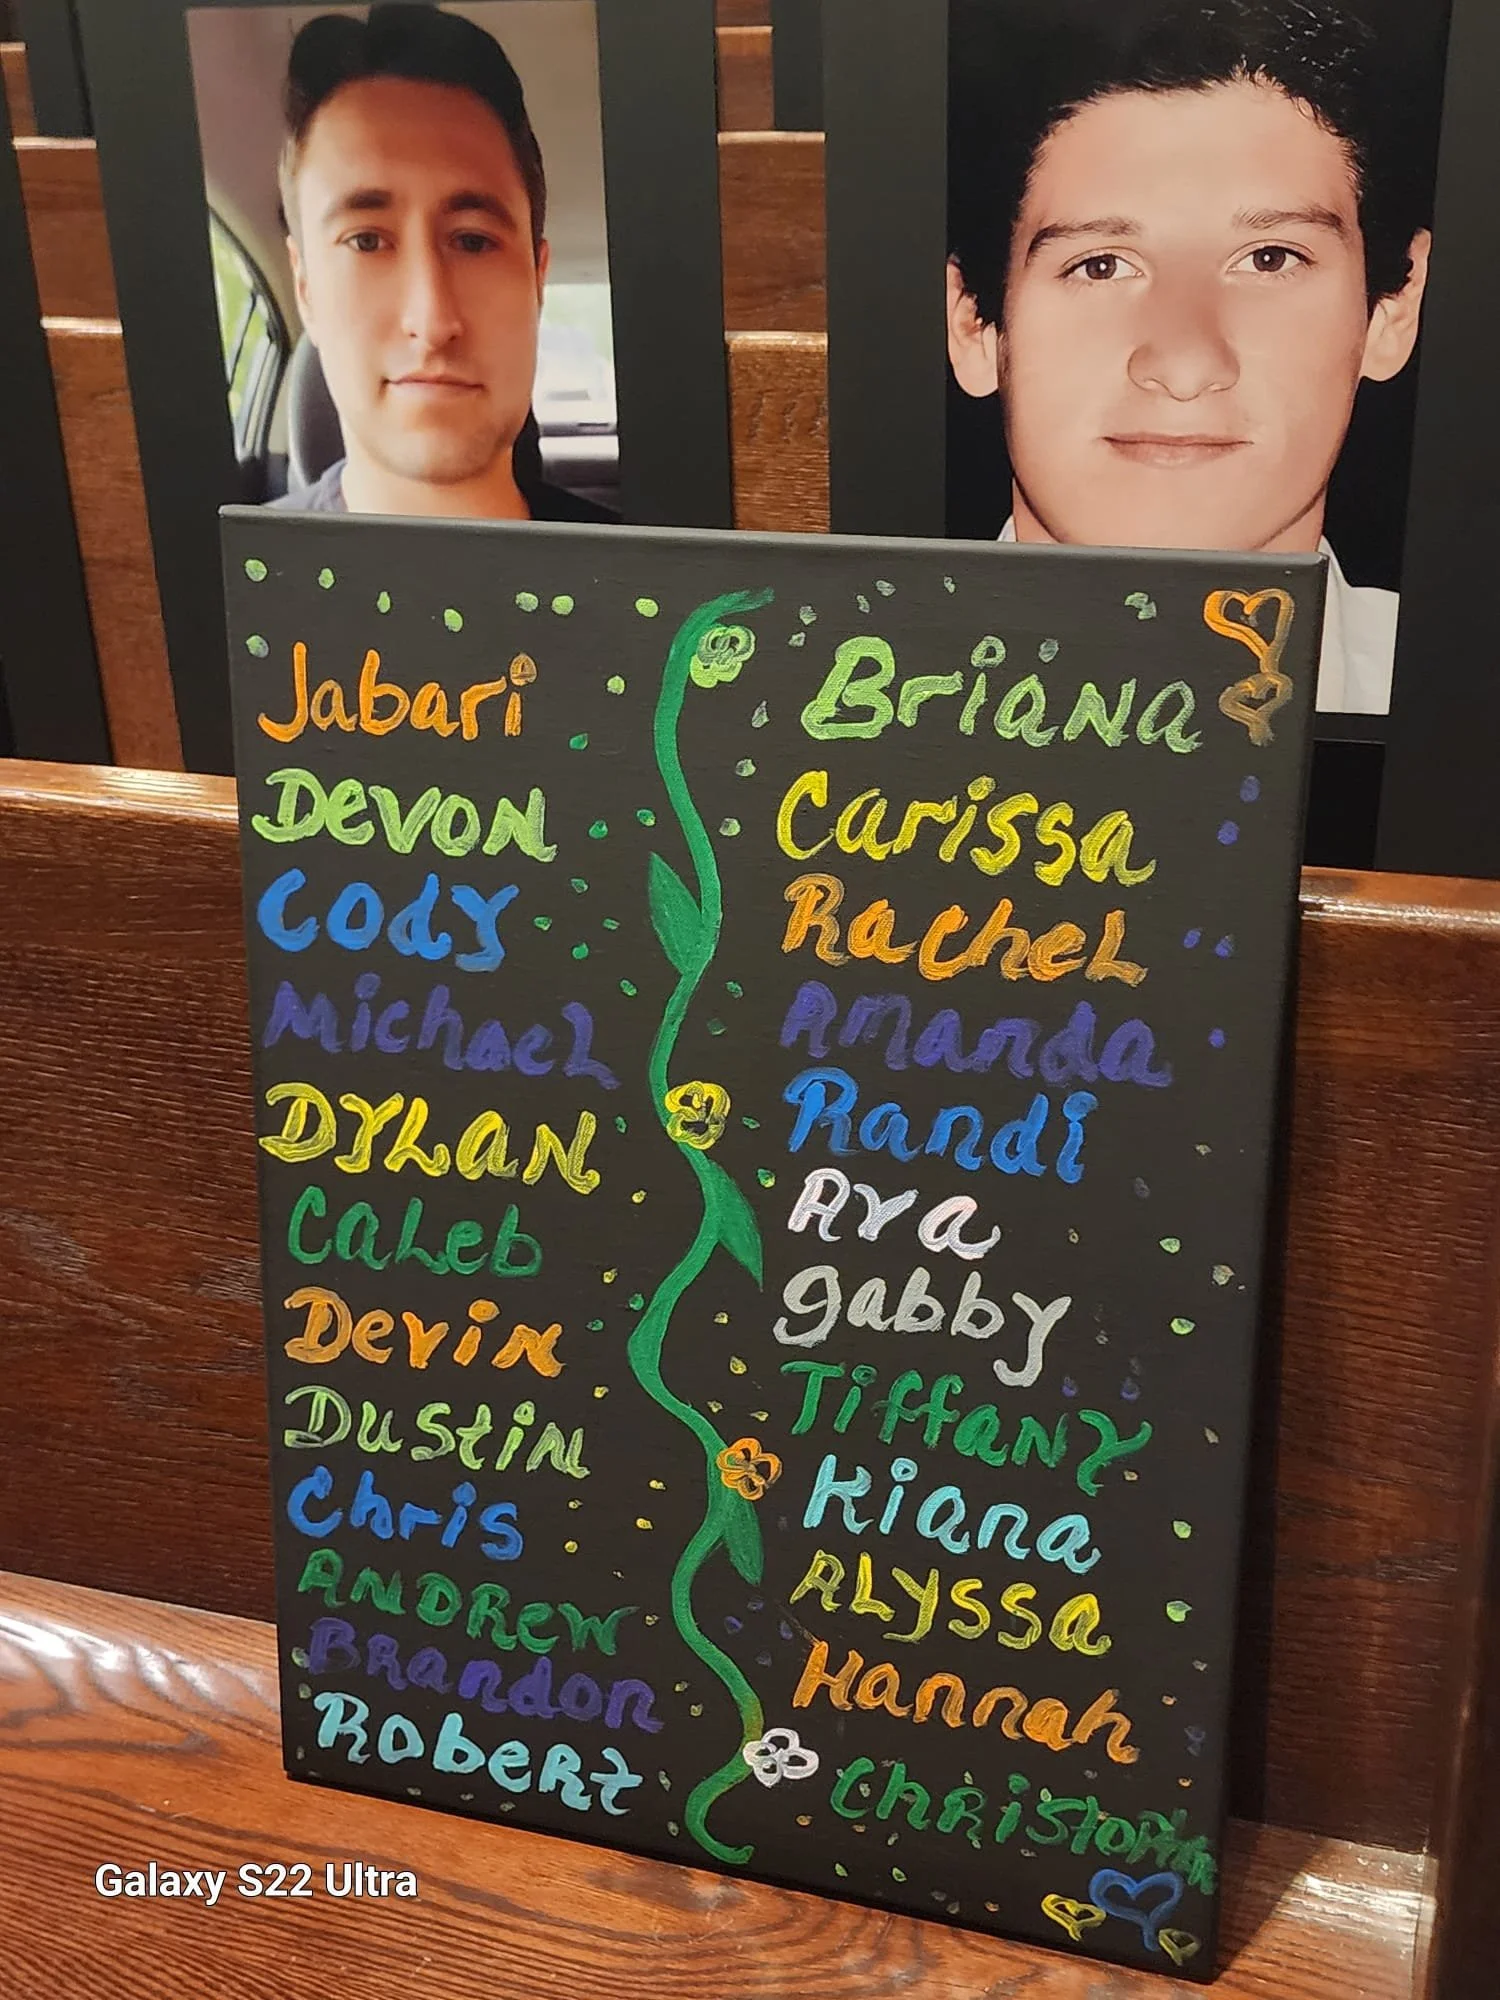 Jabari
Devon
Cody
Michael
Dylan
Caleb
Devin
Dustin
Chris
Andrew
Brandon
Robert
Briana
Carissa
Rachel
Amanda
Randi
Ava
Gabby
Tiffany
Kiana
Alyssa
Hannah
Christopher
Galaxy S22 Ultra